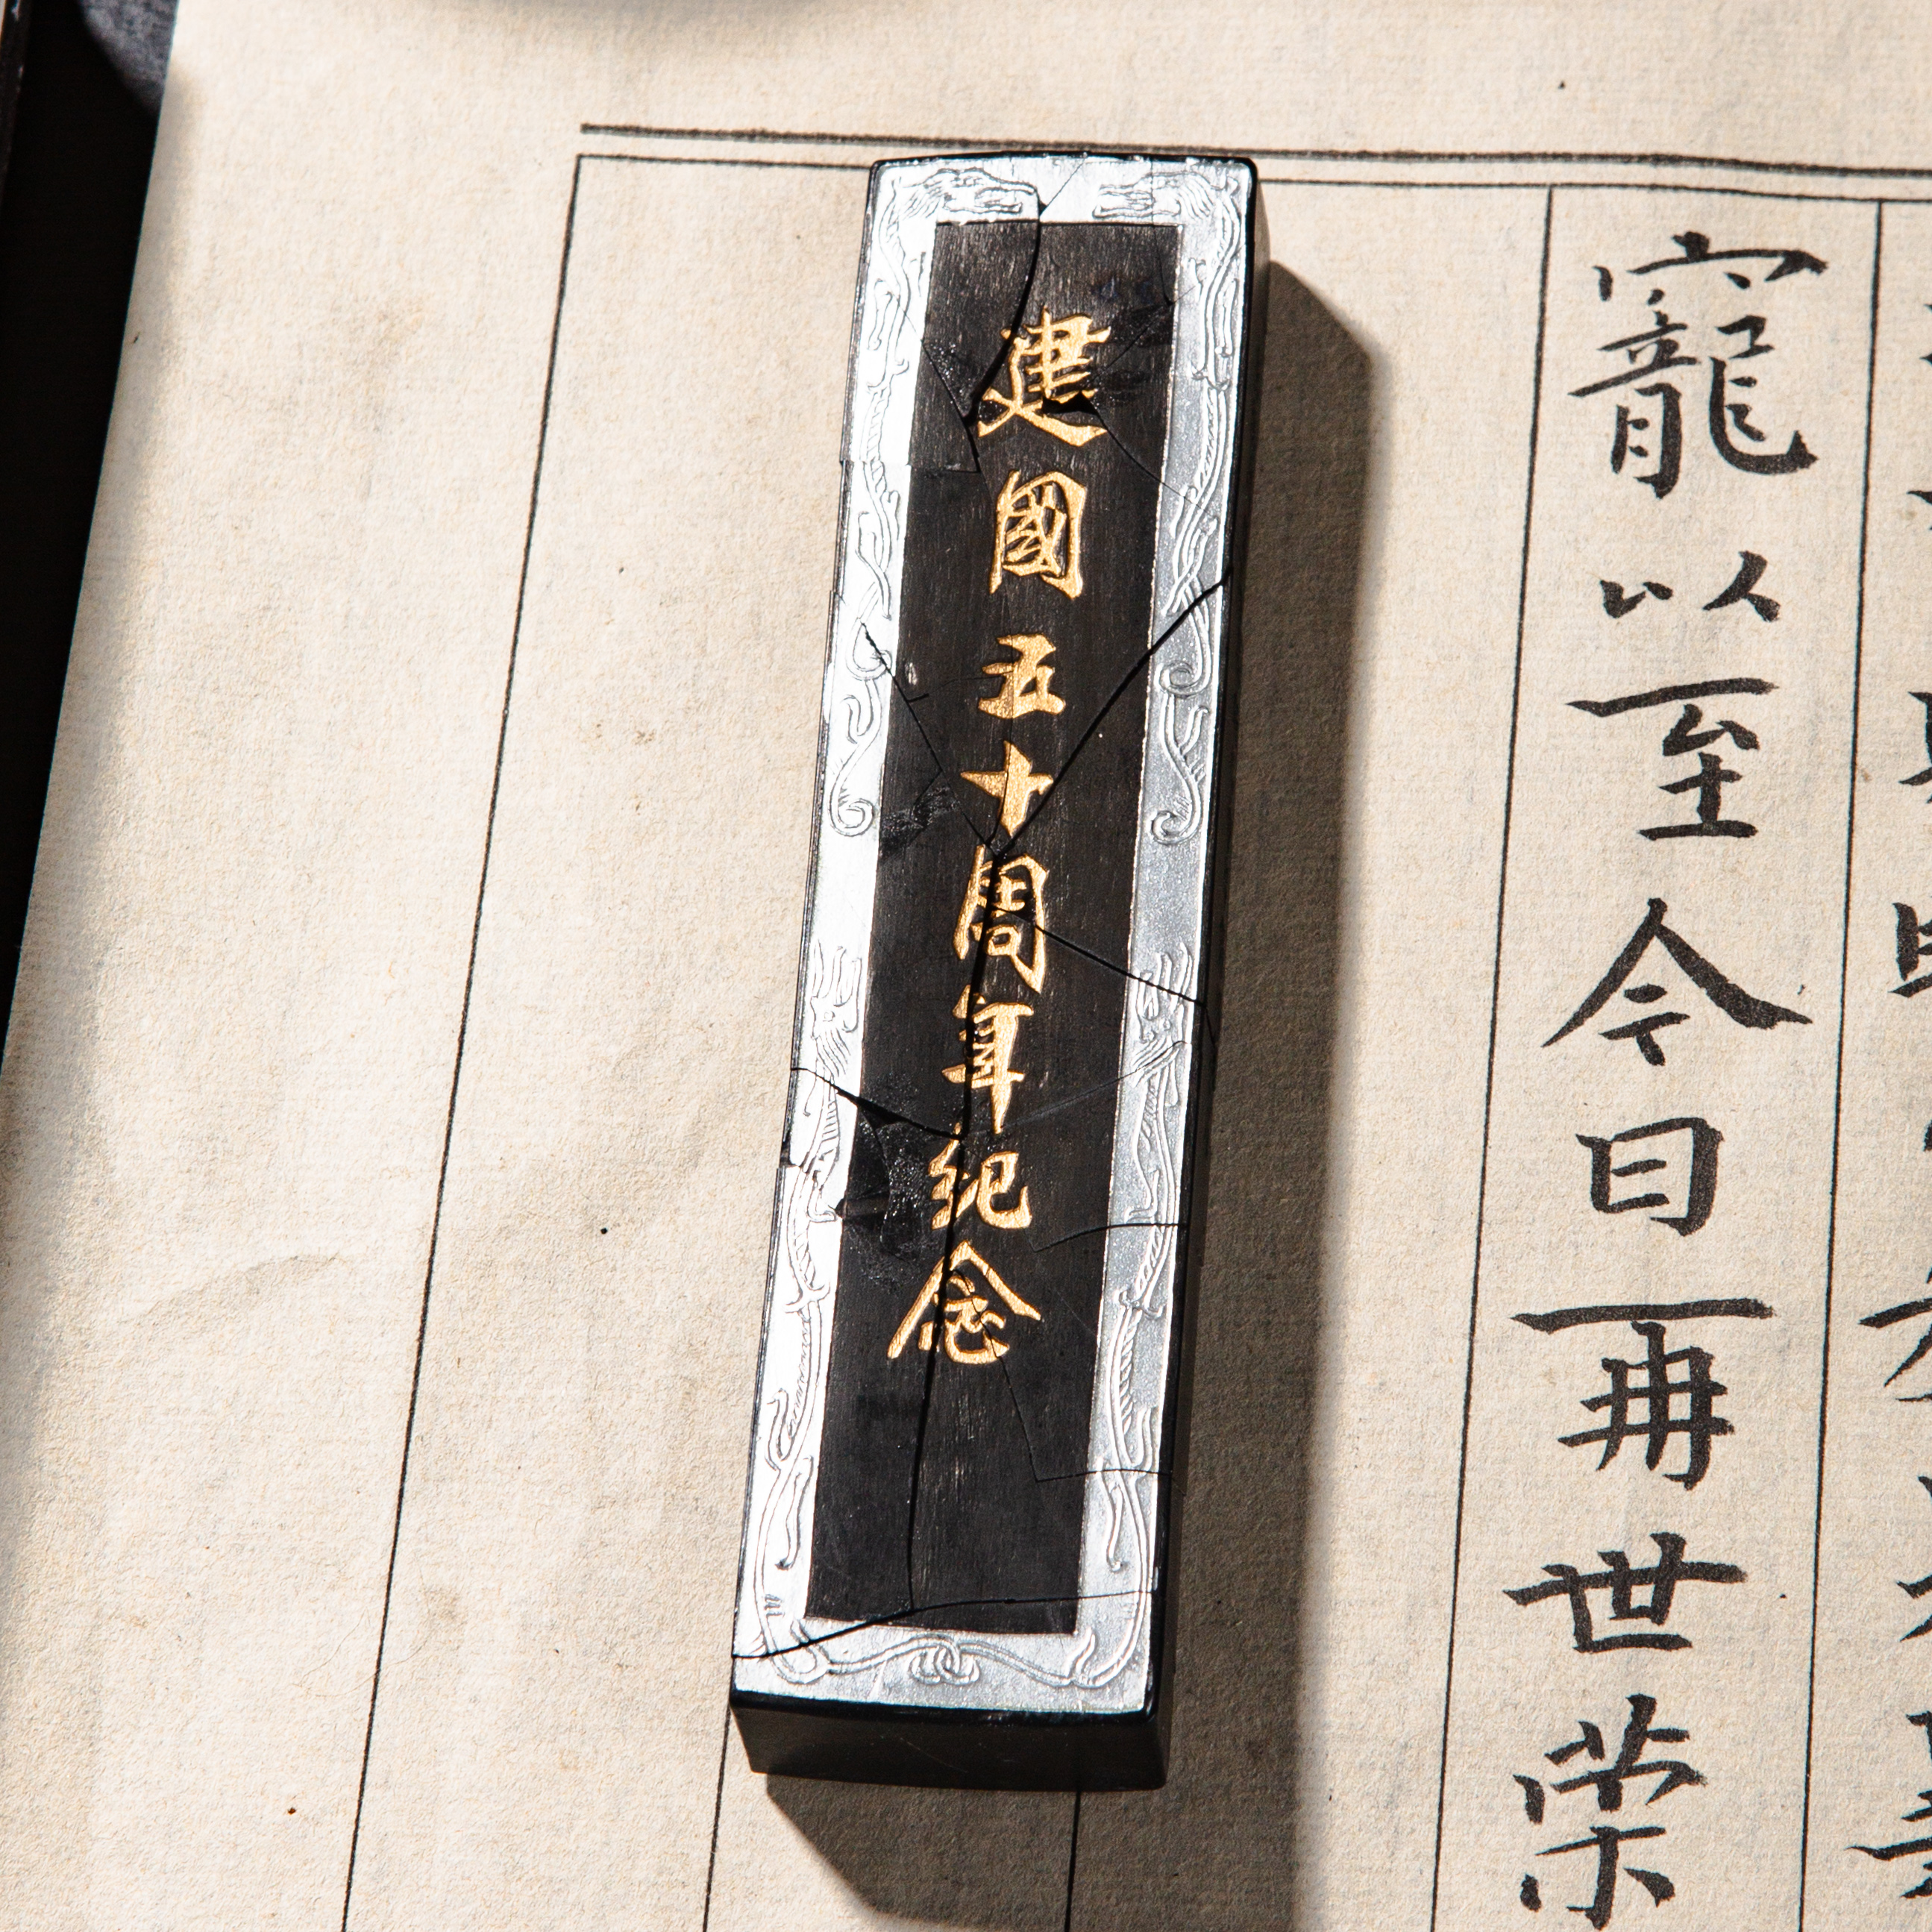 寵以至今日再世榮
建國五十周年紀念